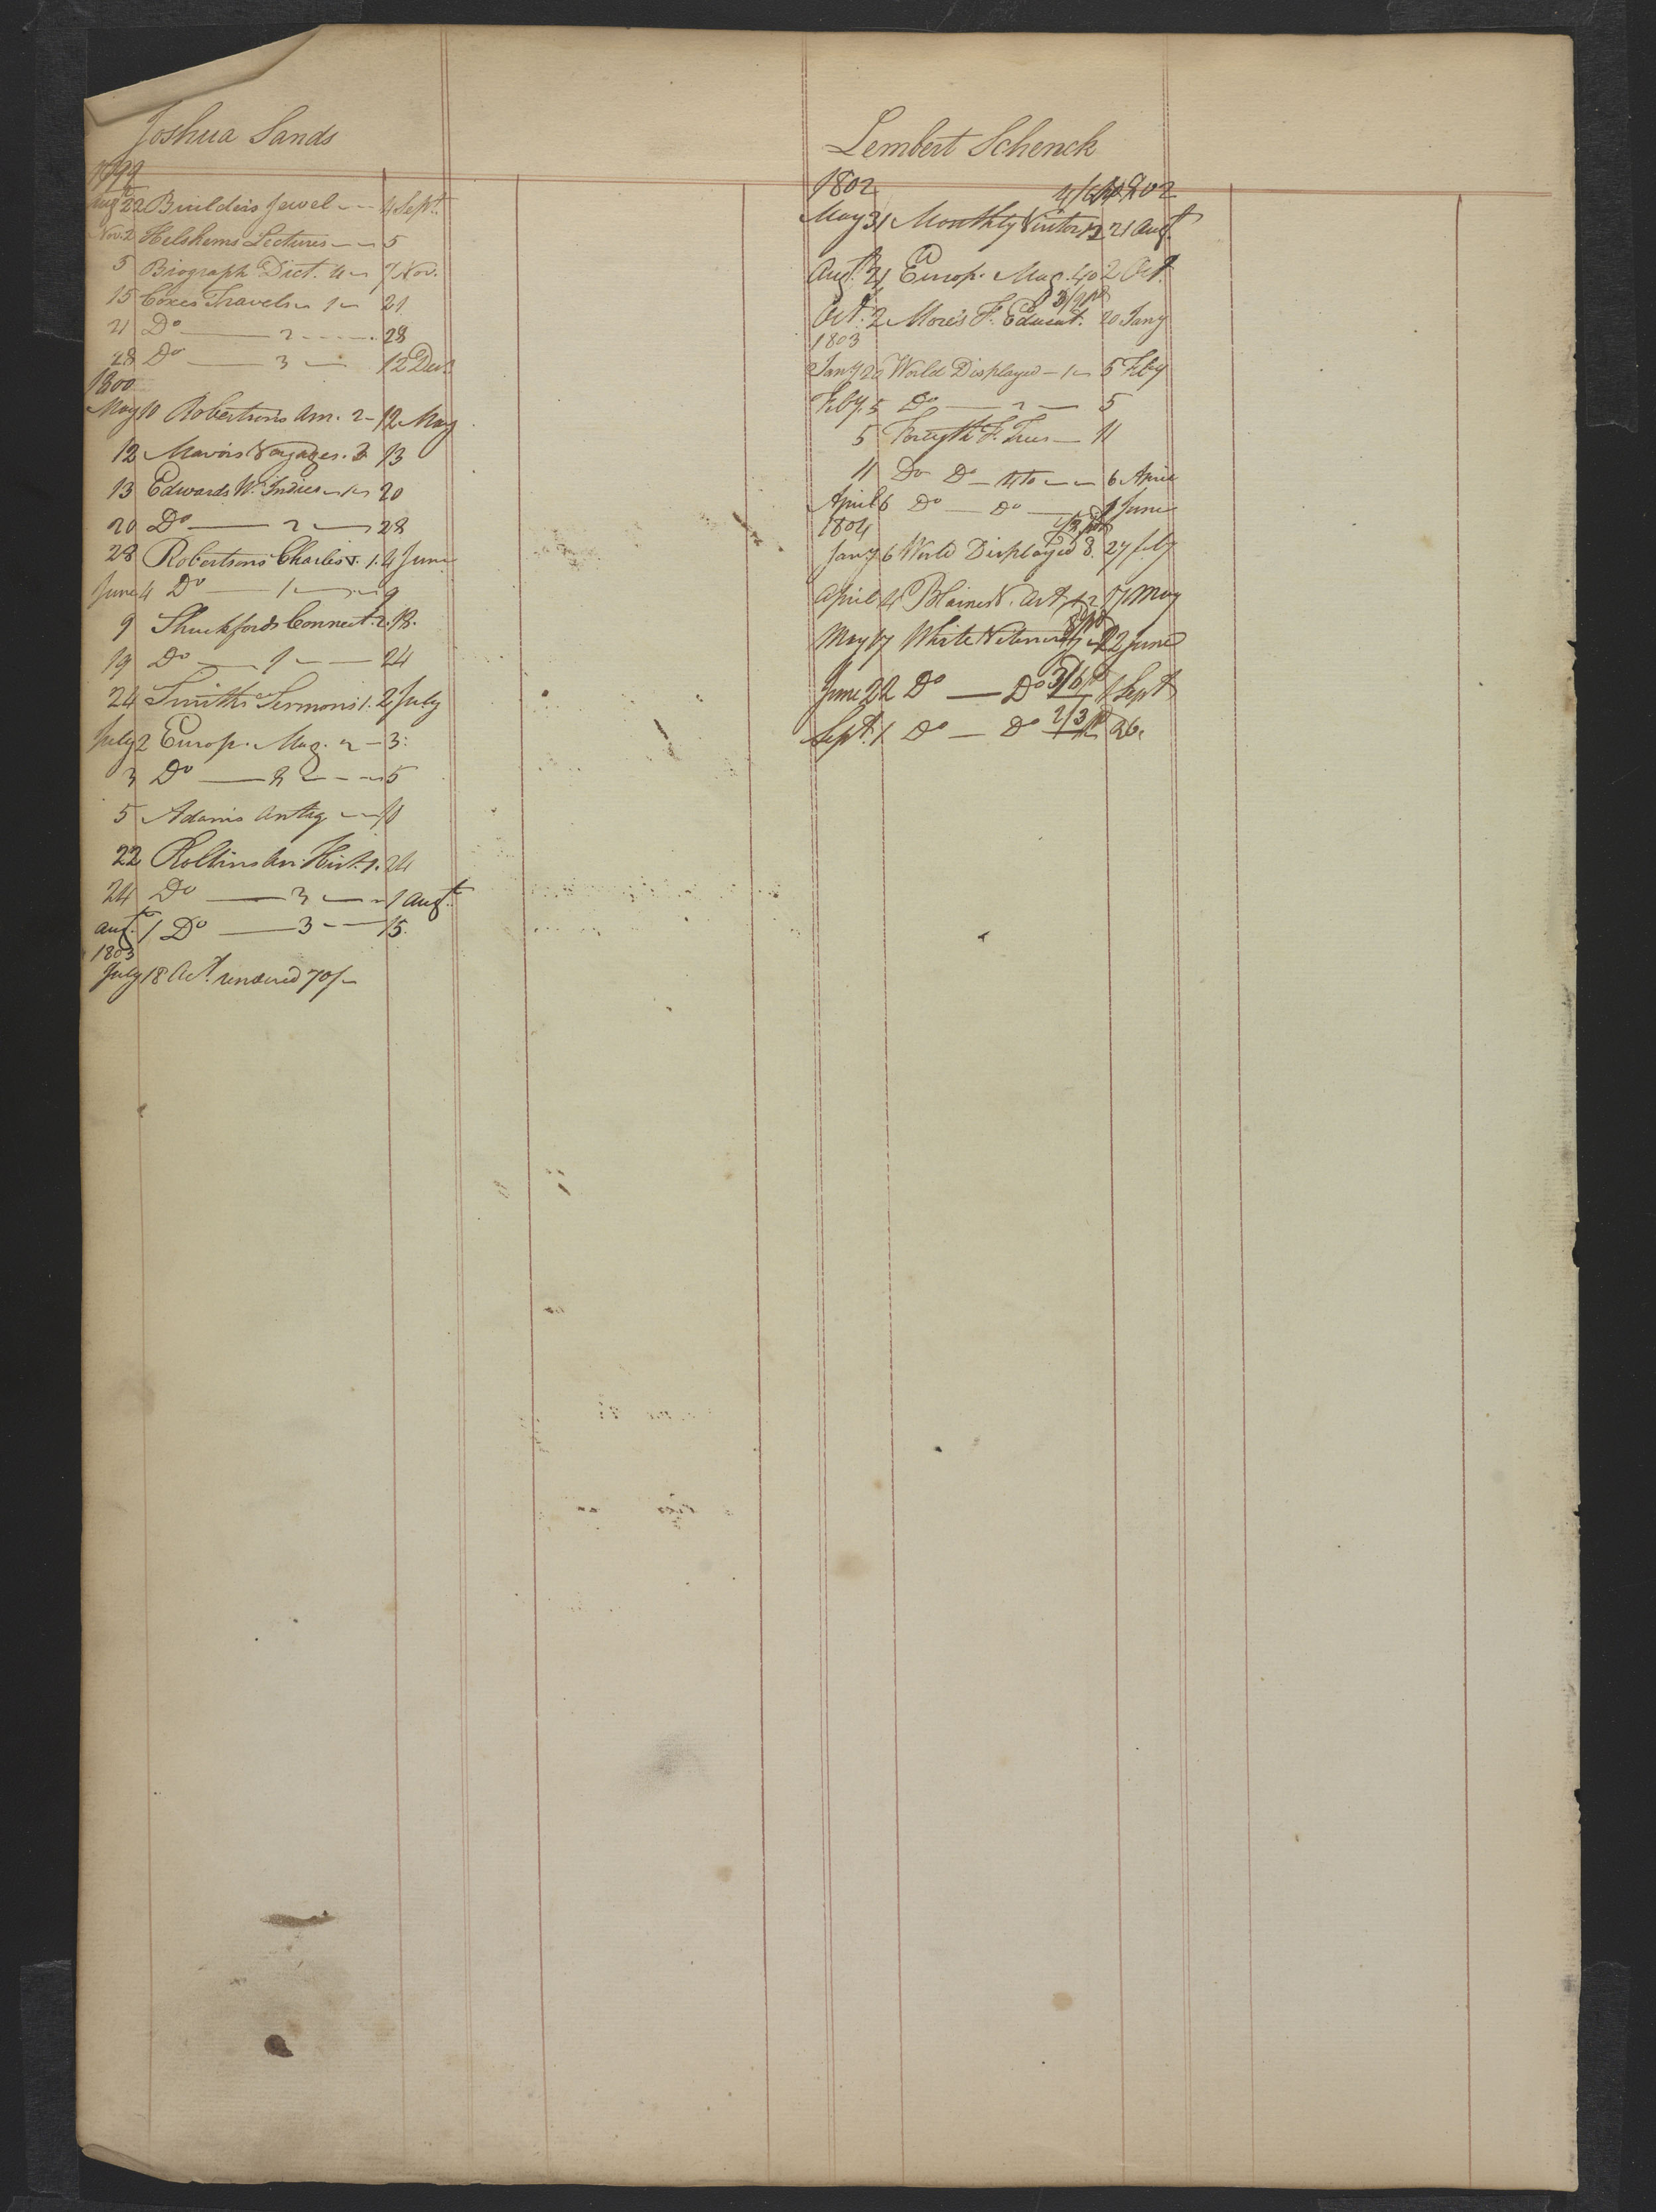 Joshua Sands
1799
Augt 22 Builders Jewel 4 Sept.
Nov. 2 Helshems Lectures 5
5 Biograph. Dict. 4 7 Nov.
15 Coxes Travels 1 21
21 Do 2 28
28 Do 3 12 Decr.
1800
May 10 Robertsons Am. 2 12 May
12 Mavors Voyages. 3 13
13 Edwards W. Indies 1 20
20 Do 2 28
28 Robertsons Charles V. 1. 4 June
June 4 Do 1 9
9 Shuckfords Connect. 2. 18.
19 Do 1 24
24 Smiths Sermons 1. 2 July
July 2 Europ. Mag. 2 3.
3 Do 5
5 Adams Antiq
22 Rollins An. Hist. 1. 24
24 Do 3 1 Augt.
Augt. 1 Do 3 15.
1803
July 18 Act. rendered 70/
Lembert Schenck
1802
May 31 Monthly Visitor 12 21 Augt.
Augt. 21 Europ. Mag. 40 2 Oct.
3/9 pd
Oct. 2 More's F. Educat. 20 Jany
1803
Jany 20 World Displayed 1 5 Feby
Feby. 5 Do 2 5
5 Forsyth F. Trees 11
11 Do Do 4to 6 April
April 6 Do Do 1 June
1804
Jany 6 World Displayed 8. 27 feby
April 4 Blaines V. Art 17 May
May 17 White Veterinary 22 June
June 22 Do Do 3/6 pd 1 Sept
Sept. 1 Do Do 2/3 pd 26.